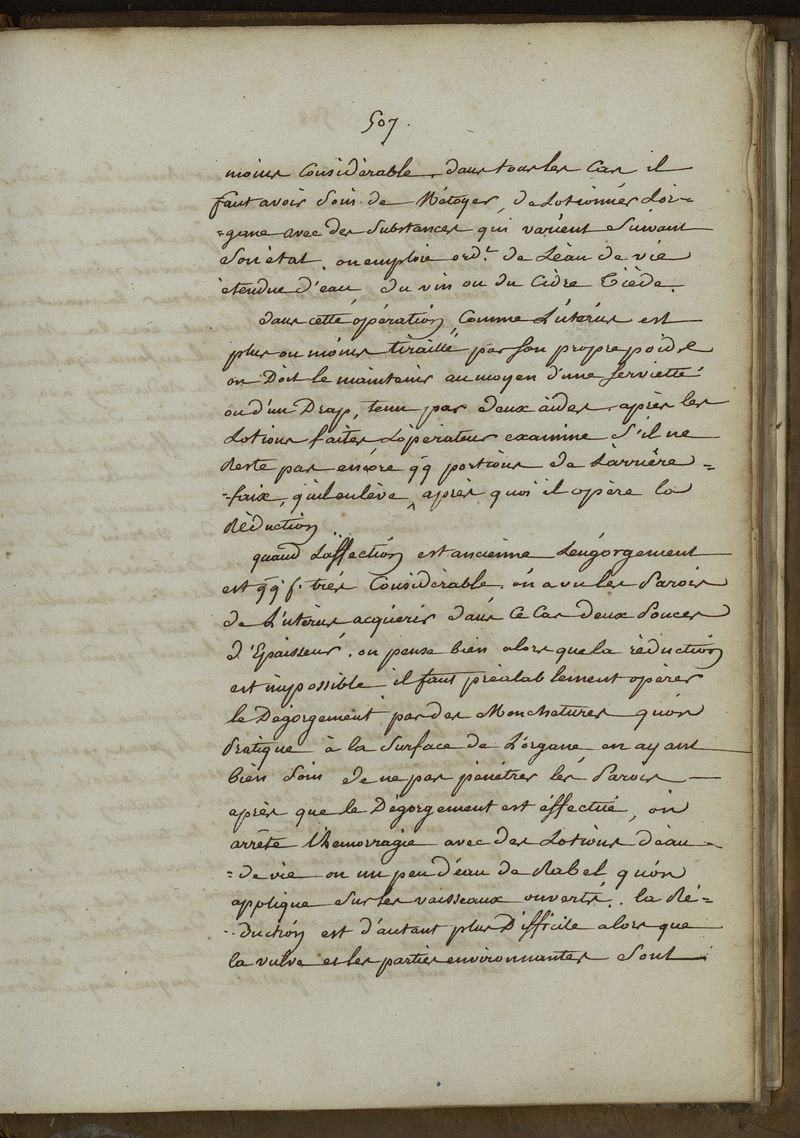 507.
moins Considèrable, dans tous les Cas il
faut avoir Soin de Nétoyer, de Lotionner L'or-
=gane avec des Substances qui varient Suivant
Son état. on emploie ord.t de L'éau de vie
étendue d'eau, du vin ou du Cidre Tiède.
dans cette opération, Comme L'utérus est
plus ou moins tiraillé par Son propre poids
on Doit le maintenir au moyen d'une Serviette
ou d'un Drap, tenu par deux aides. après les
Lotions faites L'opèrateur examine S'il ne
Reste pas encore qq portions de L'arrière =
=faix, qu'il enlève, après quoi il opère la
Réduction.
quand L'affection est ancienne L'engorgement
est qq f. très Considèrable. on a vu les Parois
de L'utérus acquérir dans Ce Cas deux Pouces
d'Epaisseur. on pense bien alors que la réduction
est impossible il faut préalablement opérer
le Dégorgement par des Mouchetures qu'on
Pratique à la Surface de L'organe en ayant
bien Soin de ne pas pénétrer les Parois —
après que le Dégorgement est éffectué, on
arrête L'hémorragie avec des Lotions d'eau
=de vie ou un peu d'éau de Rabel qu'on
applique Sur les vaisseaux ouverts. la Ré=
=duction est d'autant plus Difficile alors que
la vulve et les parties environnantes Sont